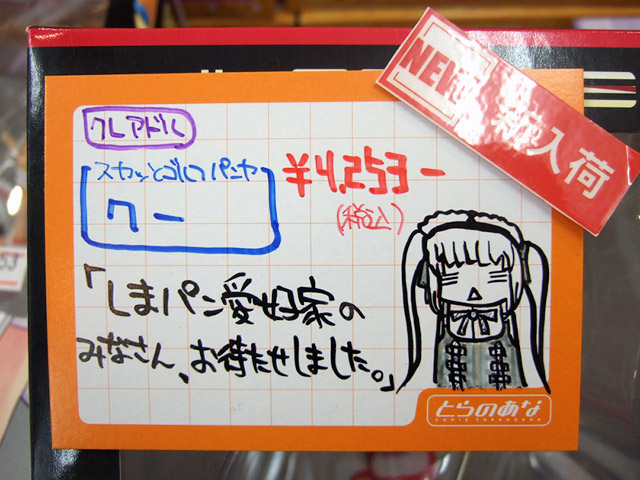 NEW
新入荷
クレアドル
スカッとゴルフパンヤ
クー
¥4,253-
(税込)
「しまパン愛好家の
みなさん、お待たせしました。」
とらのあな
COMIC TORANOANA